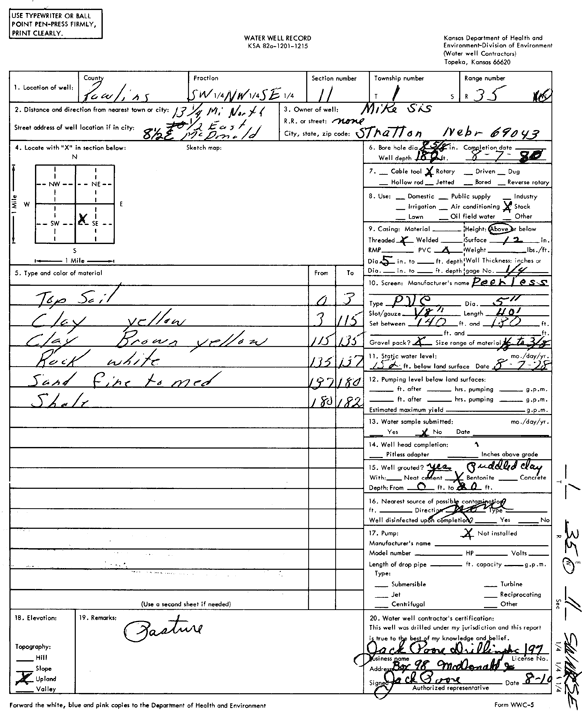 USE TYPEWRITER OR BALL
POINT PEN-PRESS FIRMLY,
PRINT CLEARLY.
WATER WELL RECORD
KSA 82a-1201-1215
Kansas Department of Health and
Environment-Division of Environment
(Water well Contractors)
Topeka, Kansas 66620
1. Location of well: County Rawlins Fraction SW 1/4 NW 1/4 SE 1/4 Section number 11 Township number T 1 S Range number R 35
2. Distance and direction from nearest town or city: 13 1/4 Mi North
Street address of well location if in city: 8 1/2 E 1/2 East McDonald
3. Owner of well: Mike Sis
R.R. or street: none
City, state, zip code: Stratton Nebr 69043
4. Locate with "X" in section below: Sketch map:
N
NW NE
W E
SW X SE
S
1 Mile
1 Mile
5. Type and color of material From To
Top Soil 0 3
Clay yellow 3 115
Clay Brown yellow 115 135
Rock white 135 137
Sand fine to med 137 180
Shale 180 182
(Use a second sheet if needed)
6. Bore hole dia. in. Completion date 8-7-
Well depth 182 ft.
7. Cable tool X Rotary Driven Dug
Hollow rod Jetted Bored Reverse rotary
8. Use: Domestic Public supply Industry
Irrigation Air conditioning X Stock
Lawn Oil field water Other
9. Casing: Material Height: Above or below
Threaded X Welded Surface 12 in.
RMP PVC Weight Lbs./ft.
Dia. 5 in. to ft. depth Wall Thickness: inches or
Dia. in. to ft. depth gage No. 1/4
10. Screen: Manufacturer's name Peerless
Type PVC Dia. 5"
Slot/gauze 1/8" Length 40'
Set between 140 ft. and 180 ft.
ft. and ft.
Gravel pack? X Size range of material to 3/8
11. Static water level: mo./day/yr.
152 ft. below land surface Date 8-7-78
12. Pumping level below land surfaces:
ft. after hrs. pumping g.p.m.
ft. after hrs. pumping g.p.m.
Estimated maximum yield g.p.m.
13. Water sample submitted: mo./day/yr.
Yes X No Date
14. Well head completion:
Pitless adapter Inches above grade
15. Well grouted? yes Puddled clay
With: Neat cement X Bentonite Concrete
Depth: From 0 ft. to 20 ft.
16. Nearest source of possible contamination:
ft. Direction none Type
Well disinfected upon completion? Yes No
17. Pump: X Not installed
Manufacturer's name
Model number HP Volts
Length of drop pipe ft. capacity g.p.m.
Type:
Submersible Turbine
Jet Reciprocating
Centifugal Other
18. Elevation:
Topography:
Hill
Slope
X Upland
Valley
19. Remarks:
Pasture
20. Water well contractor's certification:
This well was drilled under my jurisdiction and this report
is true to the best of my knowledge and belief.
Jack Poore Drilling 197
Business name License No.
Address Box 98 McDonald
Signed Jack Poore Date 8-10
Authorized representative
Forward the white, blue and pink copies to the Department of Health and Environment
Form WWC-5
T 1 R 35 W Sec 11 SWNWSE
1/4 1/4 1/4